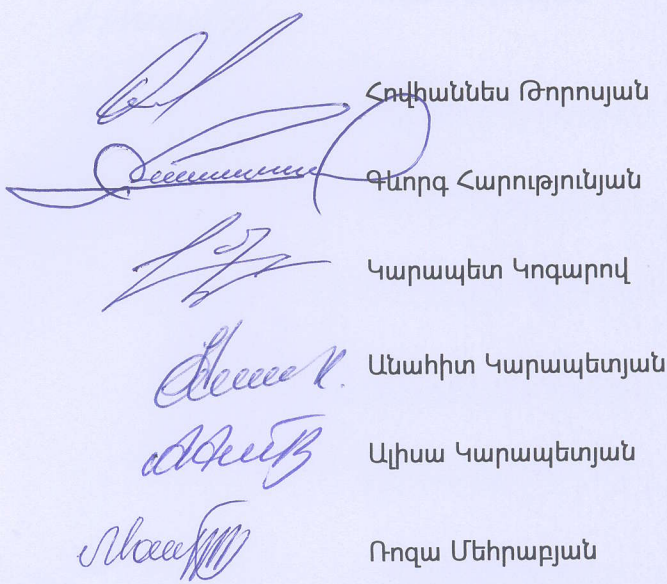 Հովհաննես Թորոսյան
Գևորգ Հարությունյան
Կարապետ Կոգարով
Անահիտ Կարապետյան
Ալիսա Կարապետյան
Ռոզա Մեհրաբյան